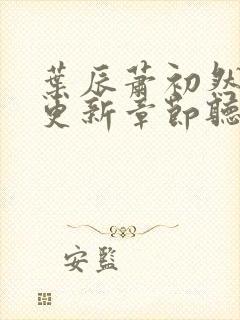 葉辰蕭初然
更新章節聽
安監